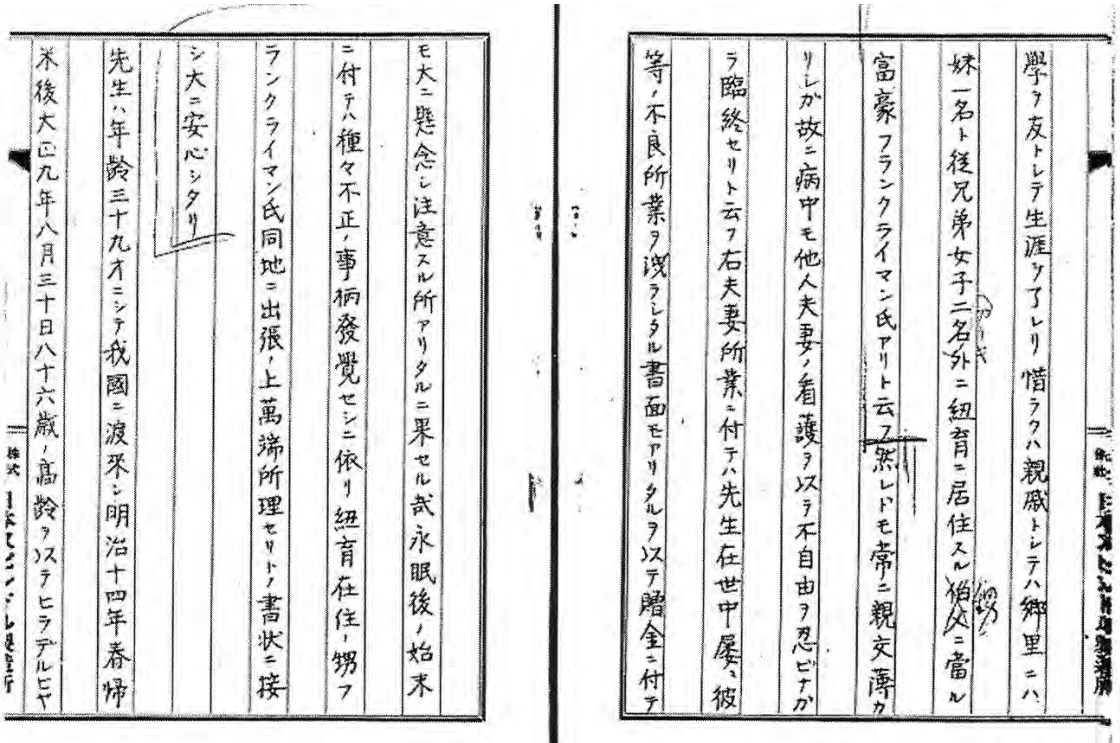 學ヲ友トシテ生涯ヲ了レリ惜ラクハ親戚トシテハ郷里ニハ
妹一名ト従兄弟女子二名外ニ紐育ニ居住スル伯父ニ當ル
甥カ
富豪フランクライマン氏アリト云フ然レドモ常ニ親交薄カ
リシガ故ニ病中モ他人夫妻ノ看護ヲ以テ不自由ヲ忍ビナガ
ラ臨終セリト云フ右夫妻所業ニ付テハ先生在世中屡々彼
等ノ不良所業ヲ洩ラシタル書面モアリタルヲ以テ贈金ニ付テ
モ大ニ懸念シ注意スル所アリタルニ果セル哉永眠後ノ始末
ニ付テハ種々不正ノ事柄發覺セシニ依リ紐育在住ノ甥フ
ランクライマン氏同地ニ出張ノ上萬端所理セリトノ書状ニ接
シ大ニ安心シタリ
先生ハ年齢三十九才ニシテ我國ニ渡来シ明治十四年春帰
米後大正九年八月三十日八十六歳ノ高齢ヲ以テヒラデルヒヤ